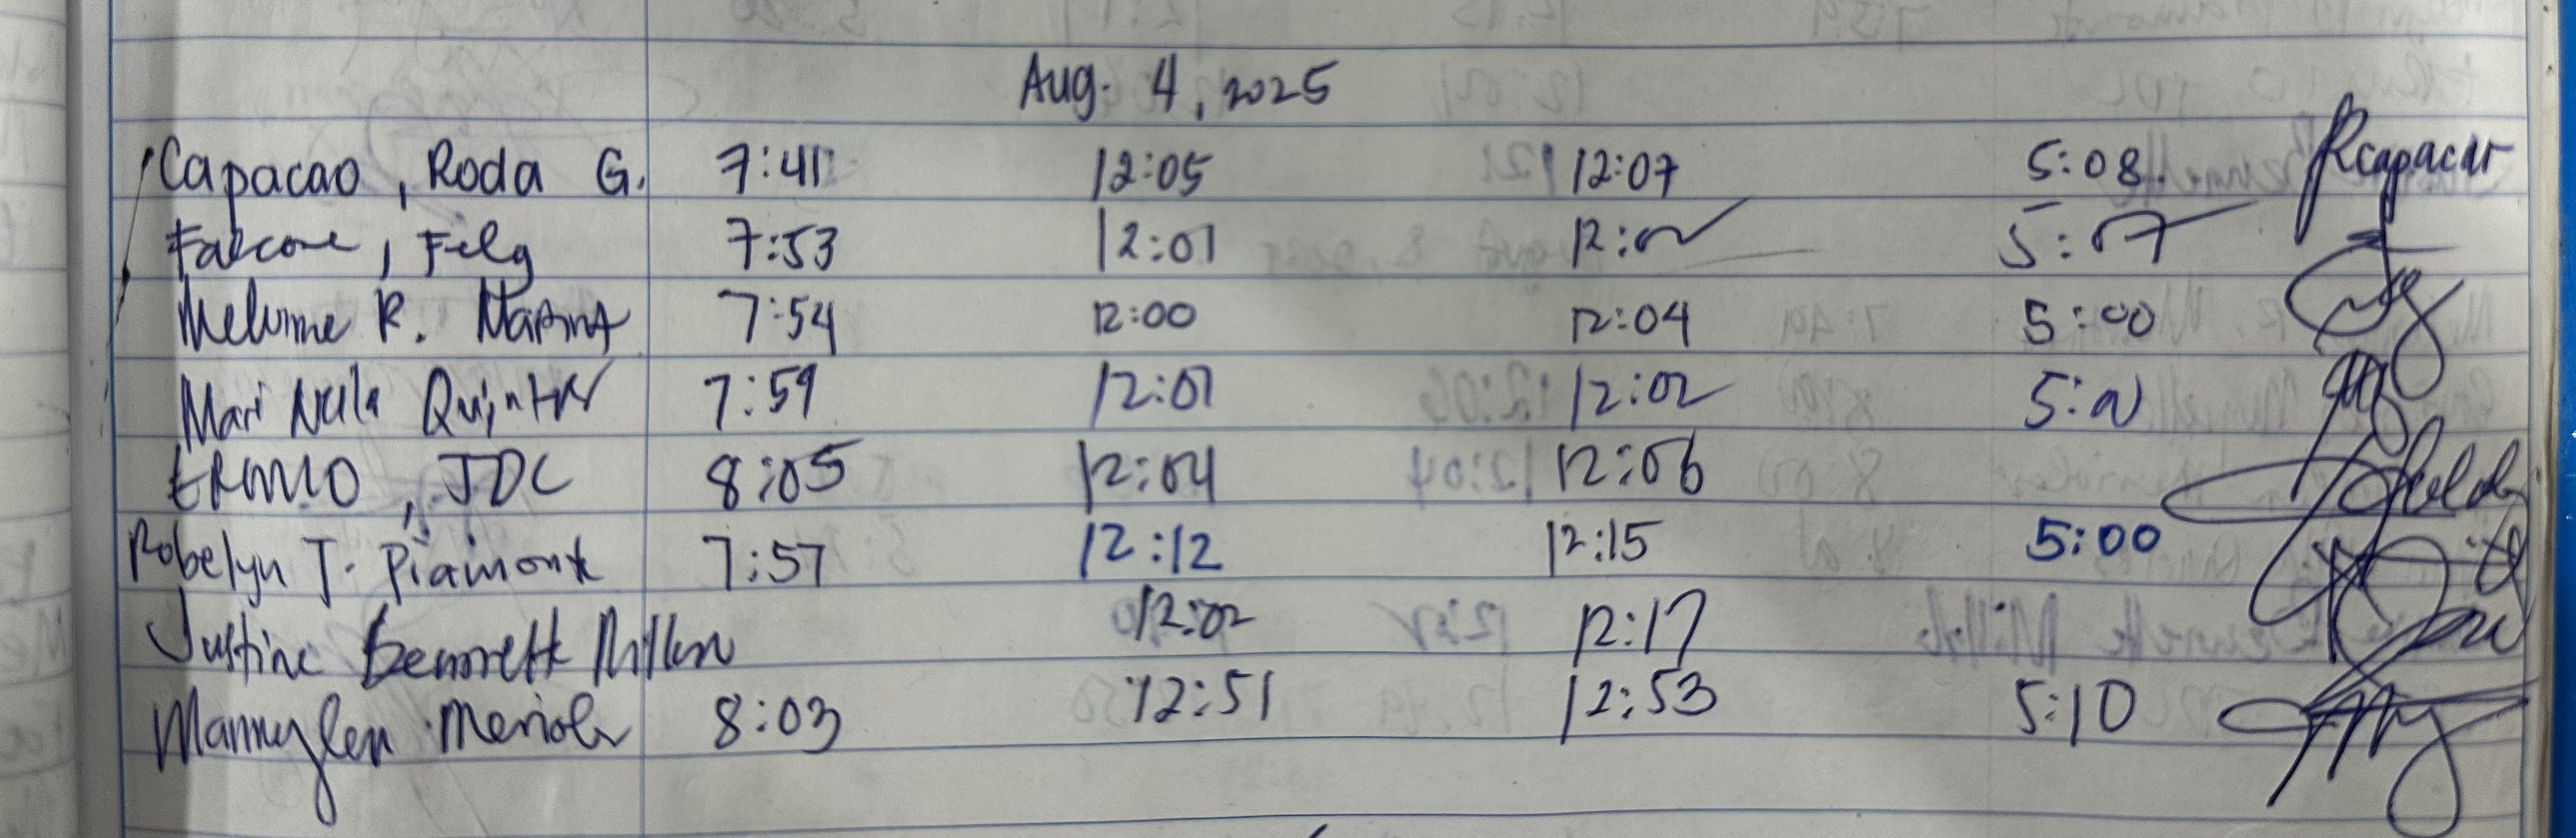 Aug. 4, 2025
Capacao, Roda G. 7:41 12:05 12:07 5:08 Rcapacao
Falcone, Felg 7:53 12:01 12:02 5:07
Melvinne R. 7:54 12:00 12:04 5:00
Mari Nela 7:59 12:01 12:02 5:01
ERMIO, JDC 8:05 12:04 12:06
Robelyn T. Piamonte 7:57 12:12 12:15 5:00
Justine Bennett 12:02 12:17
Mannylen Meriola 8:03 12:51 12:53 5:10